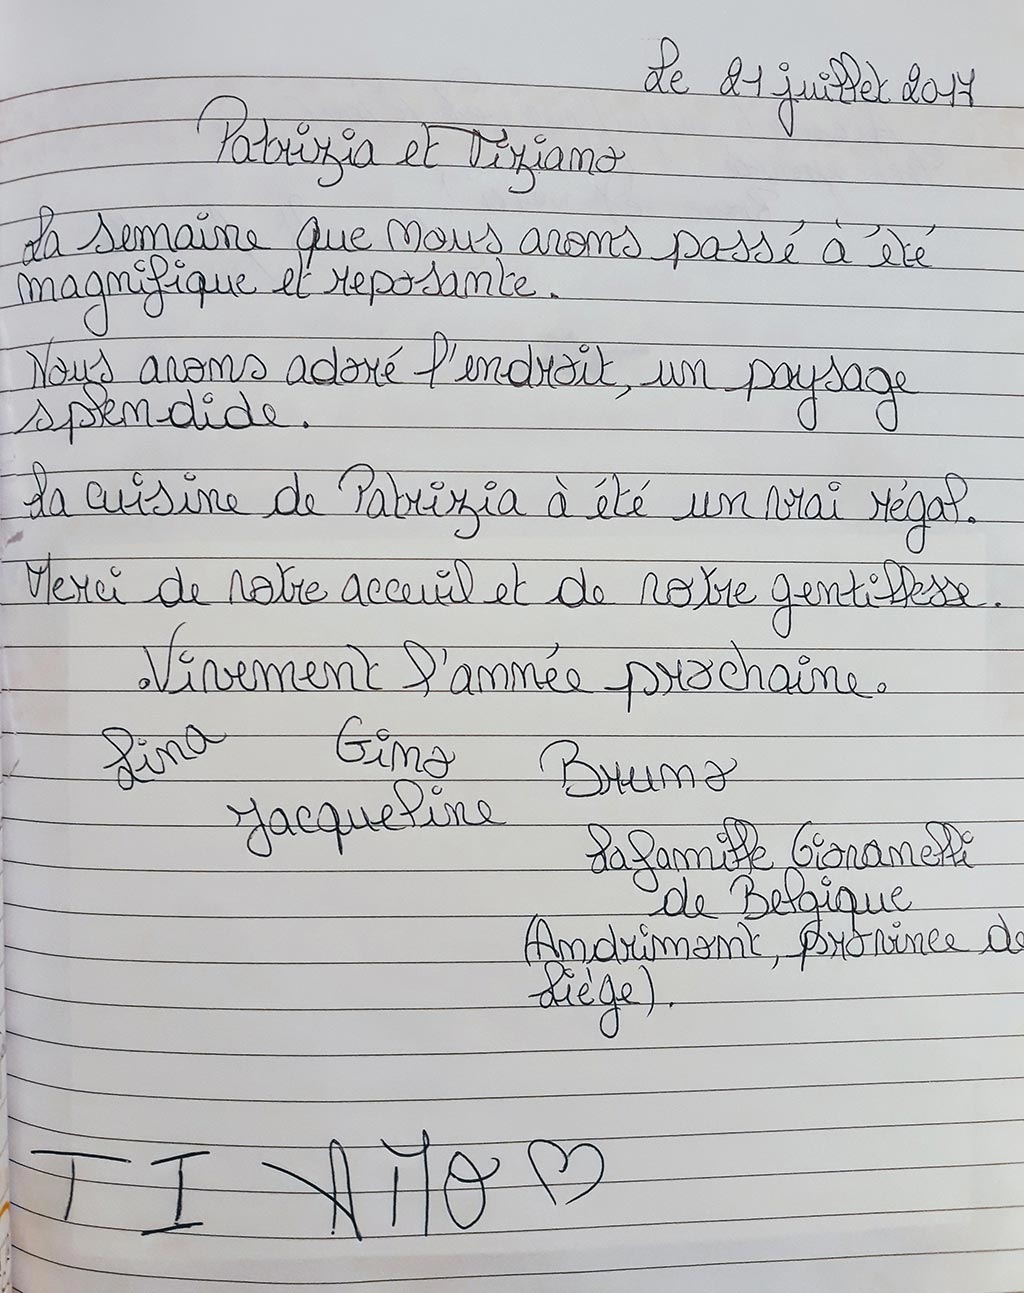 Le 21 juillet 2017
Patrizia et Tiziano
La semaine que nous avons passé à été
magnifique et reposante.
Nous avons adoré l'endroit, un paysage
splendide.
La cuisine de Patrizia à été un vrai régal.
Merci de votre acceuil et de votre gentillesse.
Vivement l'année prochaine.
Lina Gino Bruno
Jacqueline
La famille Giovanelli
de Belgique
(Andrimont, province de
Liége).
TI AMO ♡